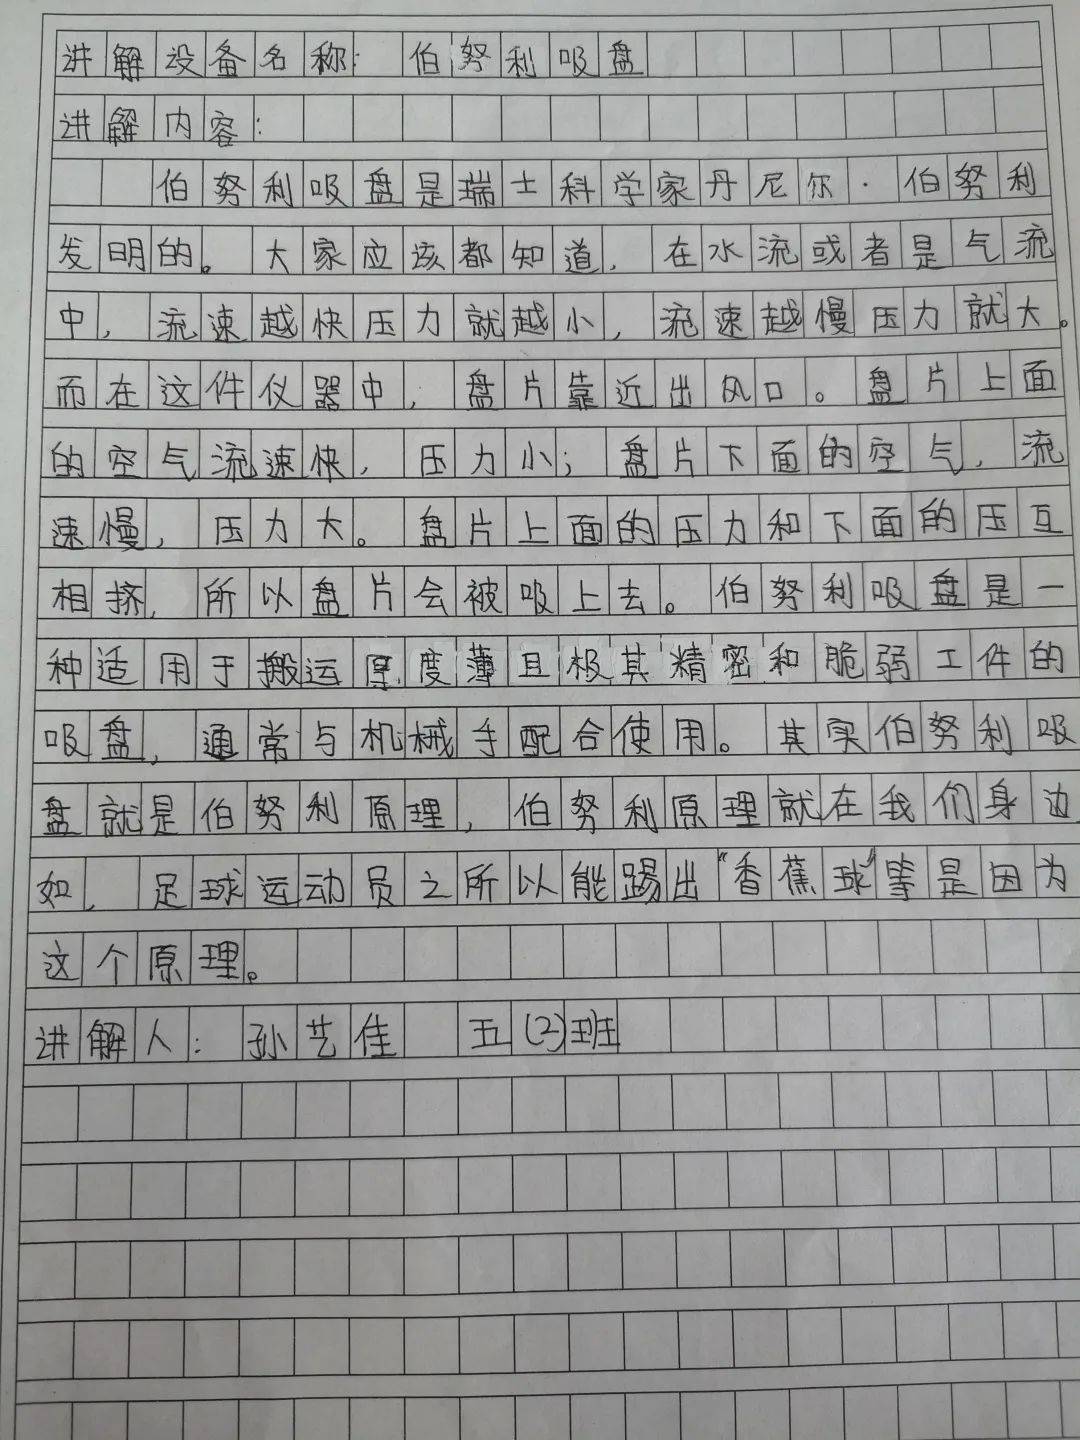 讲解设备名称：伯努利吸盘
讲解内容：
伯努利吸盘是瑞士科学家丹尼尔·伯努利
发明的。大家应该都知道，在水流或者是气流
中，流速越快压力就越小，流速越慢压力就大。
而在这件仪器中，盘片靠近出风口。盘片上面
的空气流速快，压力小；盘片下面的空气，流
速慢，压力大。盘片上面的压力和下面的压互
相挤，所以盘片会被吸上去。伯努利吸盘是一
种适用于搬运厚度薄且极其精密和脆弱工件的
吸盘，通常与机械手配合使用。其实伯努利吸
盘就是伯努利原理，伯努利原理就在我们身边
如，足球运动员之所以能踢出“香蕉球”等是因为
这个原理。
讲解人：孙艺佳 五(2)班